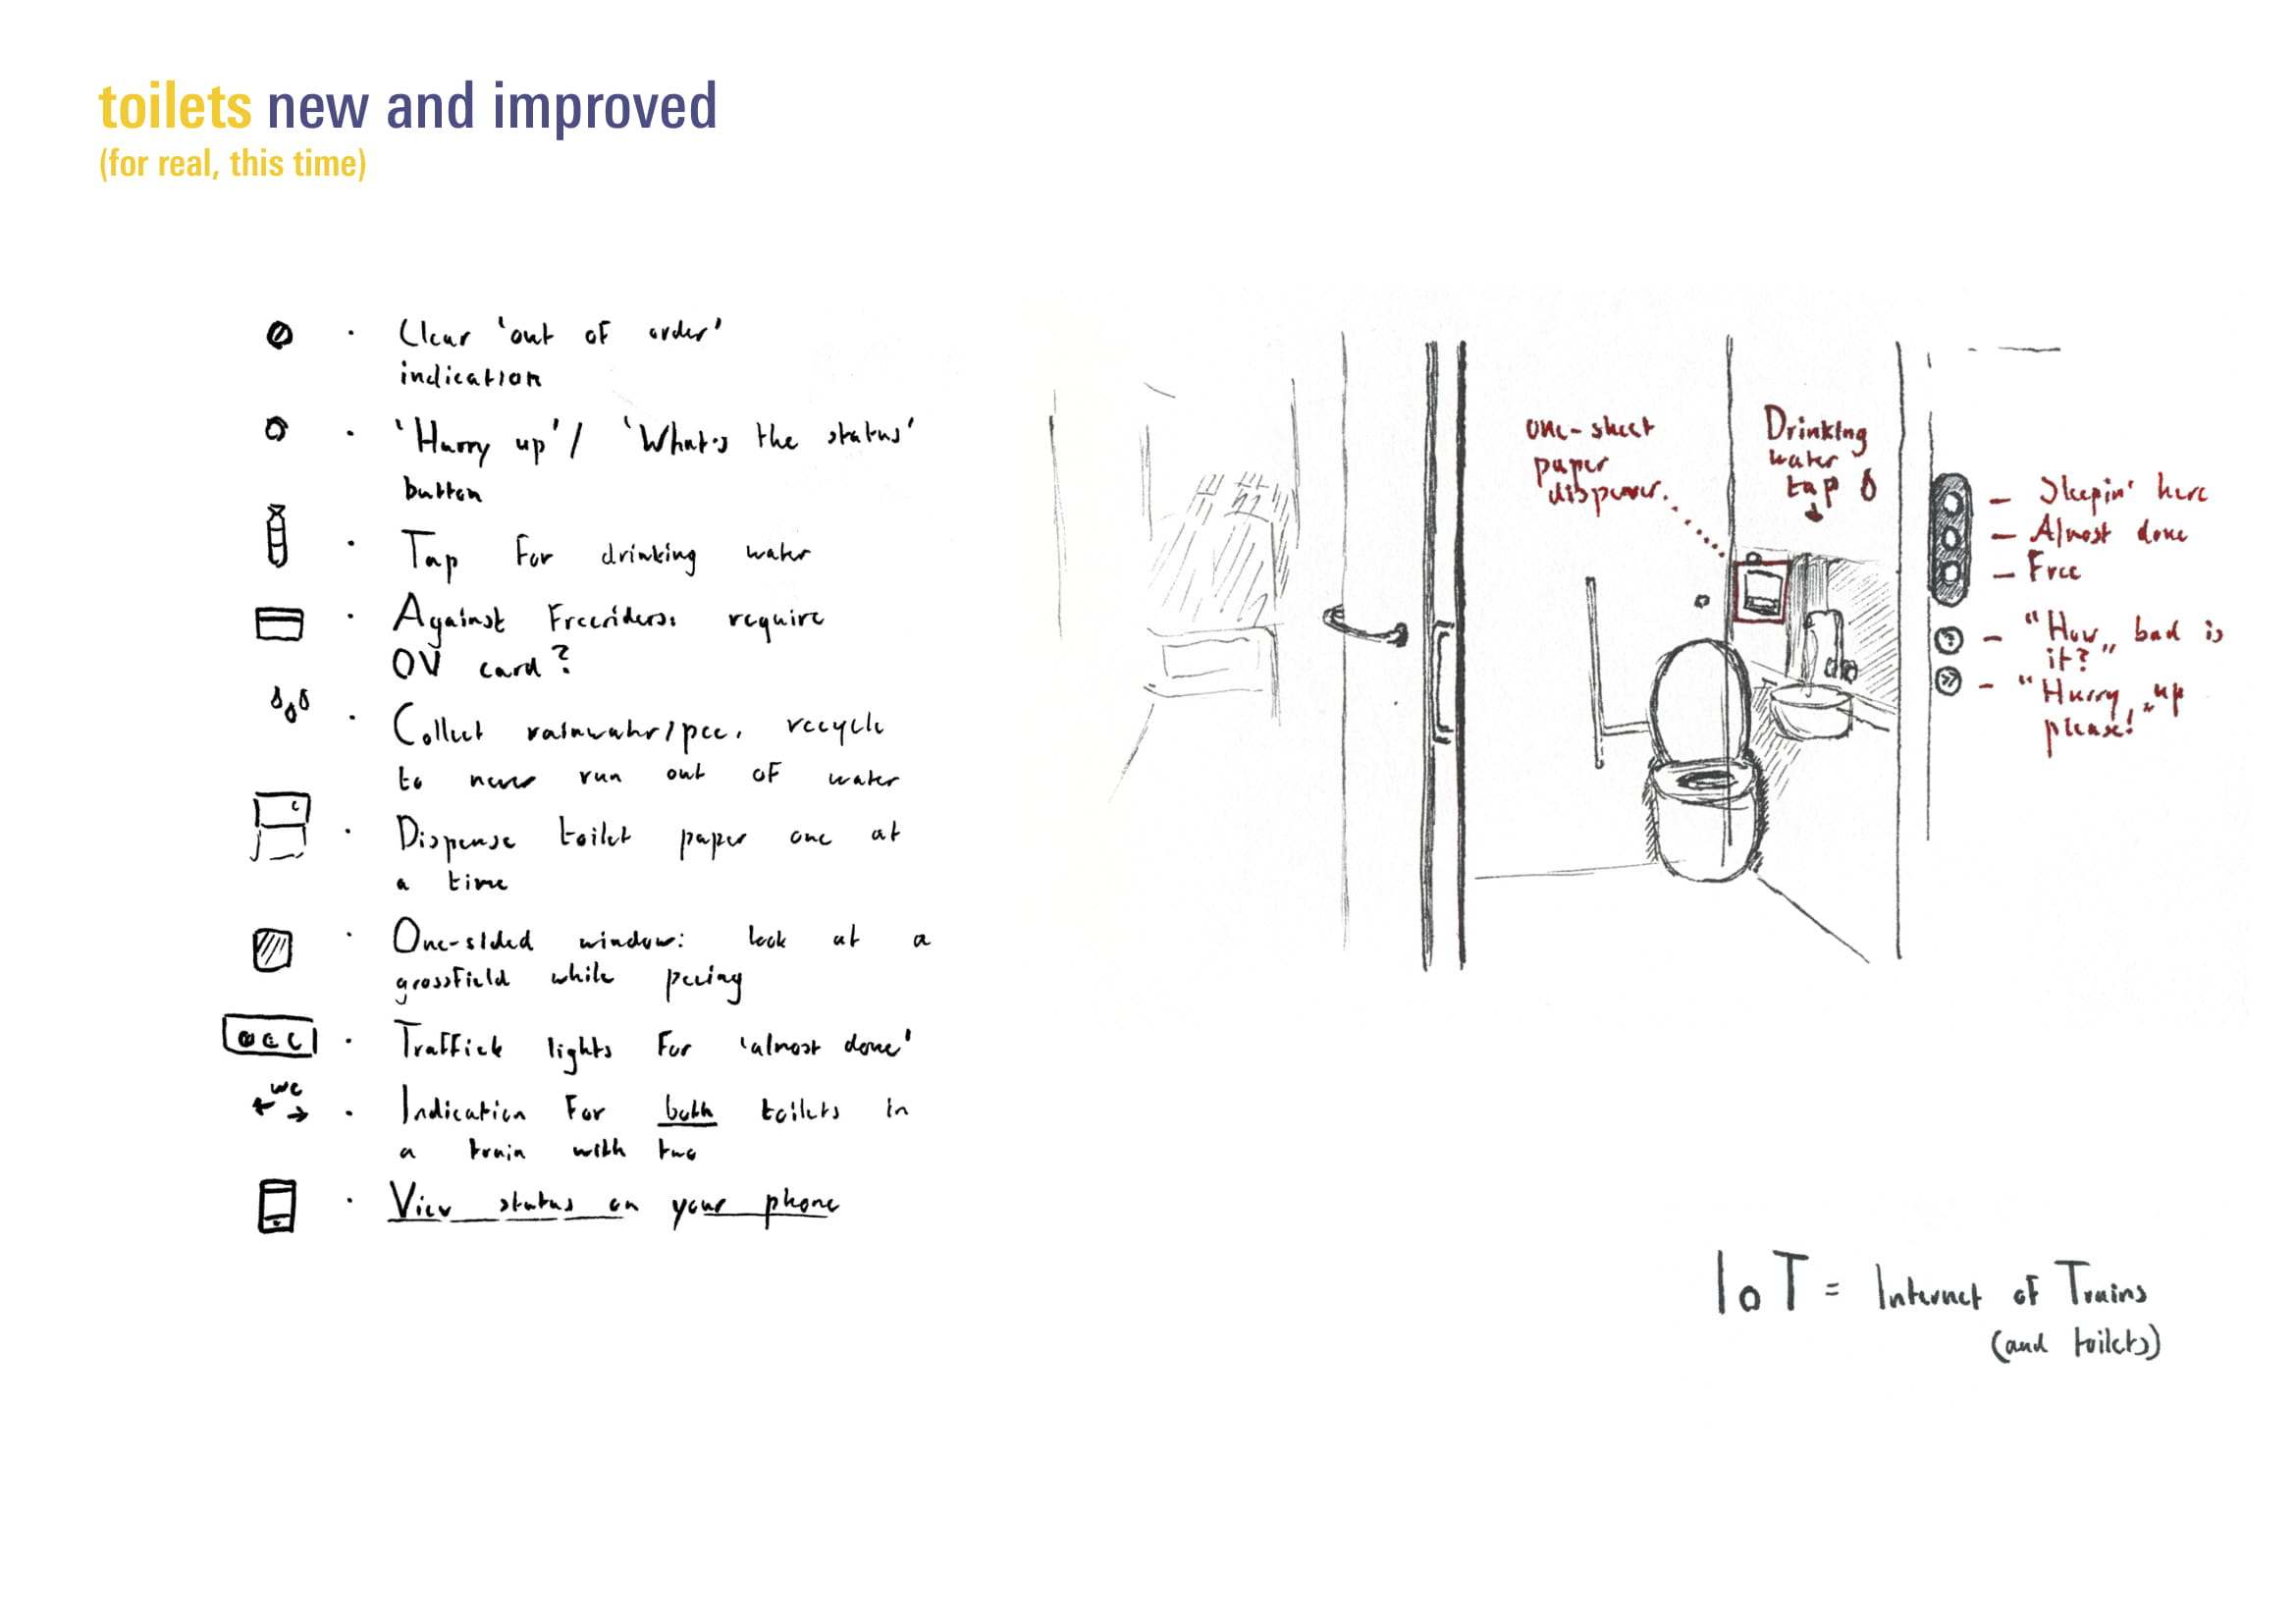 toilets new and improved
(for real, this time)
· Clear 'out of order'
indication
· 'Hurry up' / 'What's the status'
button
· Tap for drinking water
· Against Freeriders: require
OV card?
· Collect rainwater/pee, recycle
to never run out of water
· Dispense toilet paper one at
a time
· One-sided window: look at a
grassfield while peeing
· Traffick lights for 'almost done'
WC
· Indication for both toilets in
a train with two
· View status on your phone
one-sheet
paper
dispenser.
Drinking
water
tap
– Sleepin' here
– Almost done
– Free
? – "How bad is
it?"
» – "Hurry up
please!"
IoT = Internet of Trains
(and toilets)